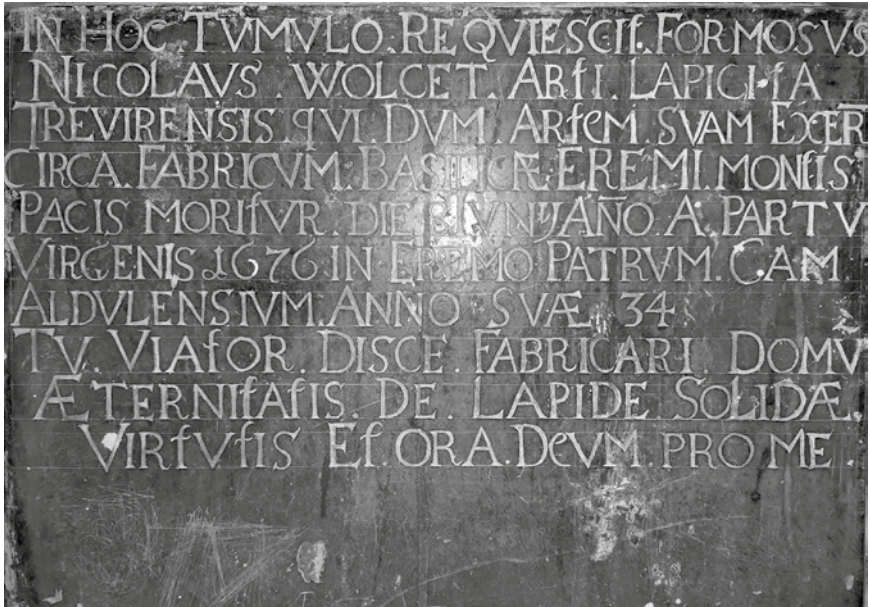 IN HOC TVMVLO. REQVIESCIt. FORMOSVS
NICOLAVS. WOLCET. ARtI. LAPICItA
TREVIRENSIS qVI. DVM. ARteM. SVAM EXER
CIRCA. FABRICVM. BASILICÆ. EREMI. MONtIS
PACIS MORItVR. DIE 8 IVNIJ AÑO. A. PARTV
VIRGENIS 1676 IN EREMO PATRVM. CAM
ALDVLENSIVM. ANNO SVÆ 34
TV. VIAtOR. DISCE. FABRICARI. DOMV
ÆTERNItAtIS. DE. LAPIDE. SOLIDÆ.
VIRtVtIS Et. ORA. DeVM. PRO ME